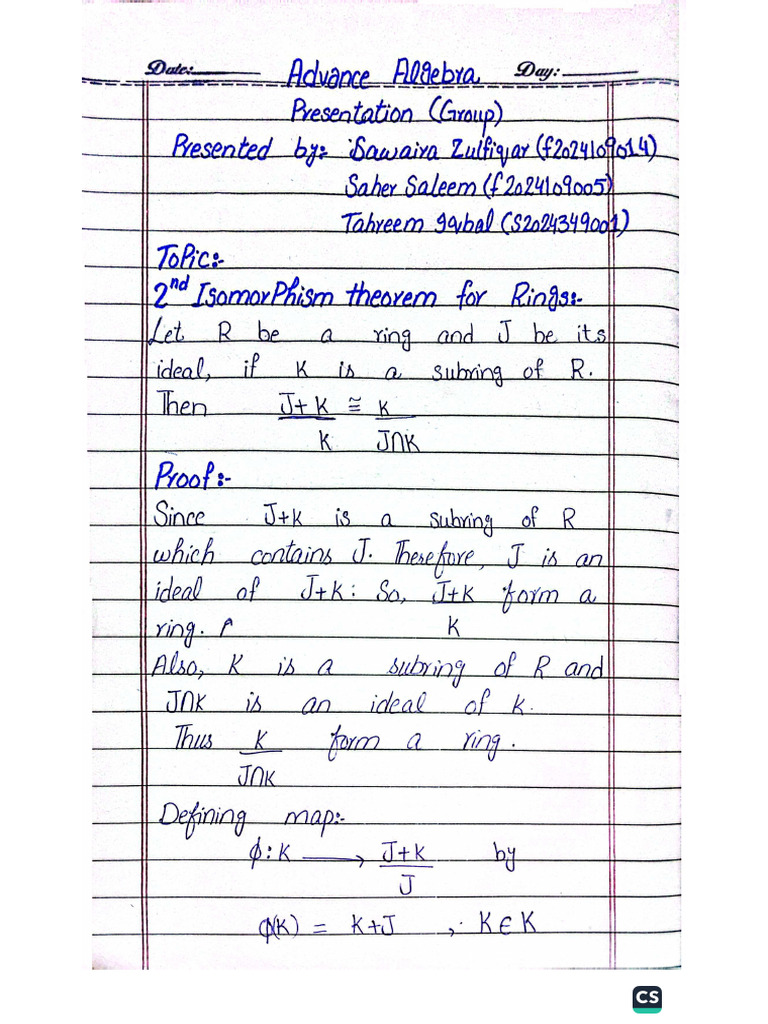 Date:
Advance Algebra
Day:
Presentation (Group)
Presented by:- Sawaira Zulfiqar (f2024109014)
Saher Saleem (f2024109005)
Tahreem Iqbal (S2024349001)
Topic:-
2nd Isomorphism theorem for Rings:-
Let R be a ring and J be its
ideal, if K is a subring of R.
Then J+K ≅ K
K J∩K
Proof:-
Since J+K is a subring of R
which contains J. Therefore, J is an
ideal of J+K: So, J+K form a
ring. K
Also, K is a subring of R and
J∩K is an ideal of K.
Thus K form a ring.
J∩K
Defining map:-
ϕ: K ⟶ J+K by
J
ϕ(K) = K+J , K ∈ K
CS